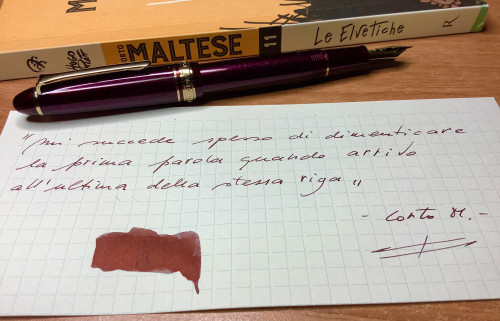 MALTESE 11 Le Elvetiche R
"mi succede spesso di dimenticare
la prima parola quando arrivo
all'ultima della stessa riga"
- Corto M. -